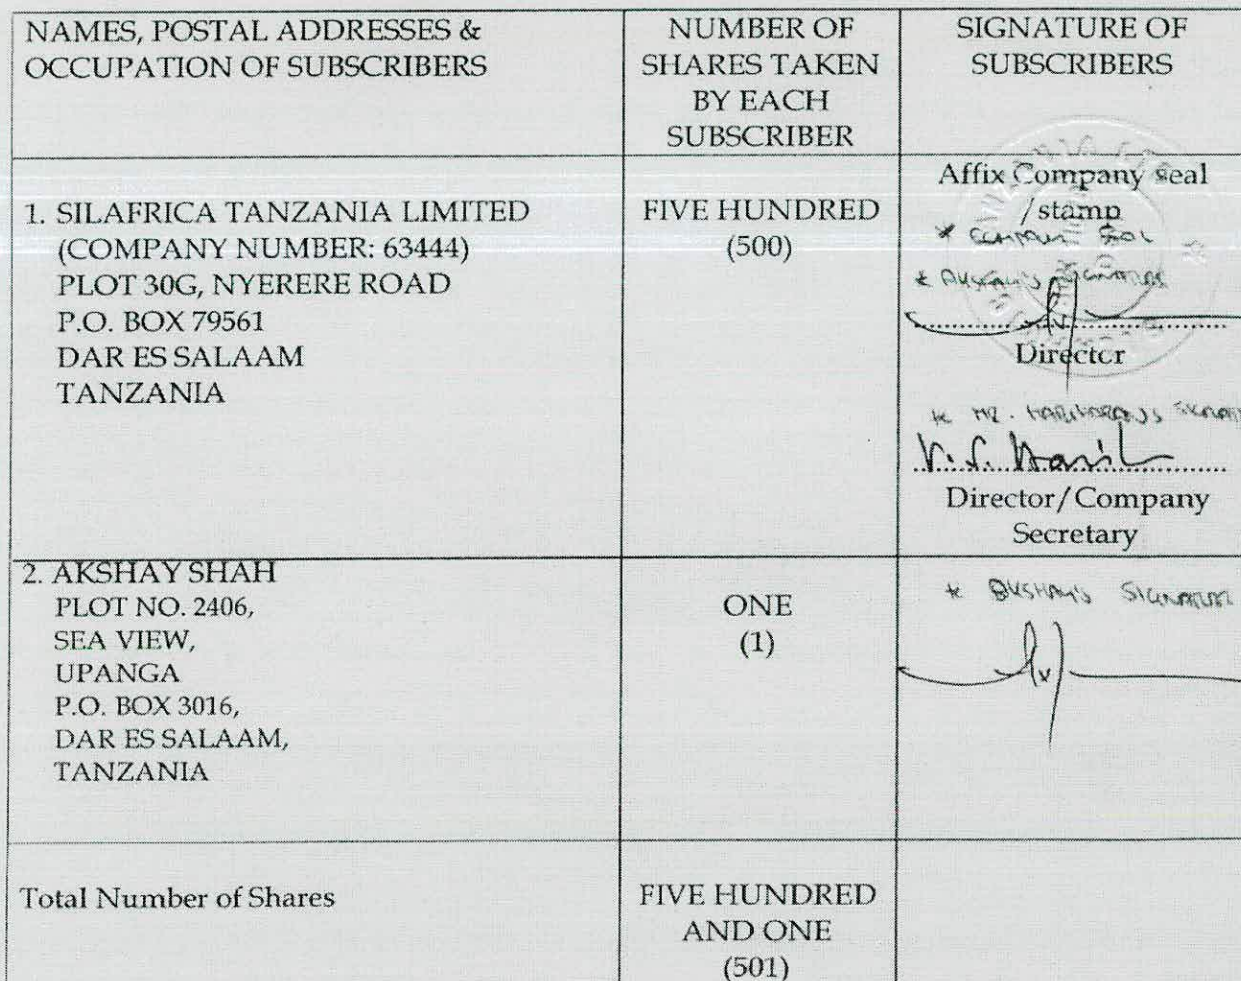 NAMES, POSTAL ADDRESSES &
OCCUPATION OF SUBSCRIBERS
NUMBER OF
SHARES TAKEN
BY EACH
SUBSCRIBER
SIGNATURE OF
SUBSCRIBERS
1. SILAFRICA TANZANIA LIMITED
(COMPANY NUMBER: 63444)
PLOT 30G, NYERERE ROAD
P.O. BOX 79561
DAR ES SALAAM
TANZANIA
FIVE HUNDRED
(500)
Affix Company seal
/stamp
* AKSHAY'S SIGNATURE
Director
* MR. HARIHARAN'S
Director/Company
Secretary
2. AKSHAY SHAH
PLOT NO. 2406,
SEA VIEW,
UPANGA
P.O. BOX 3016,
DAR ES SALAAM,
TANZANIA
ONE
(1)
* AKSHAY'S SIGNATURE
Total Number of Shares
FIVE HUNDRED
AND ONE
(501)